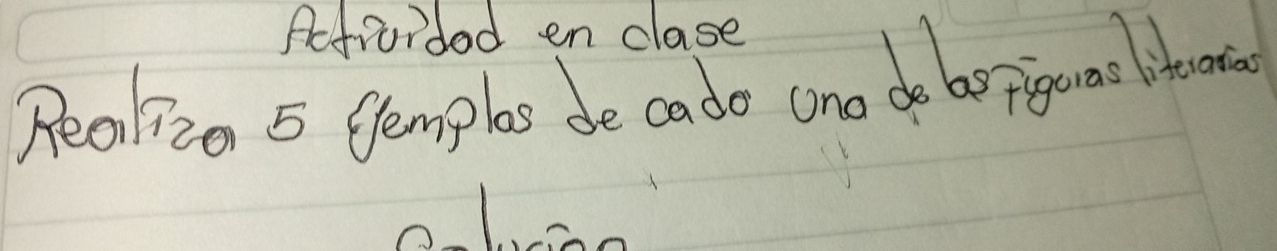 Actividad en clase
Realiza 5 Ejemplos de cada una de las figuras literarias
Solución